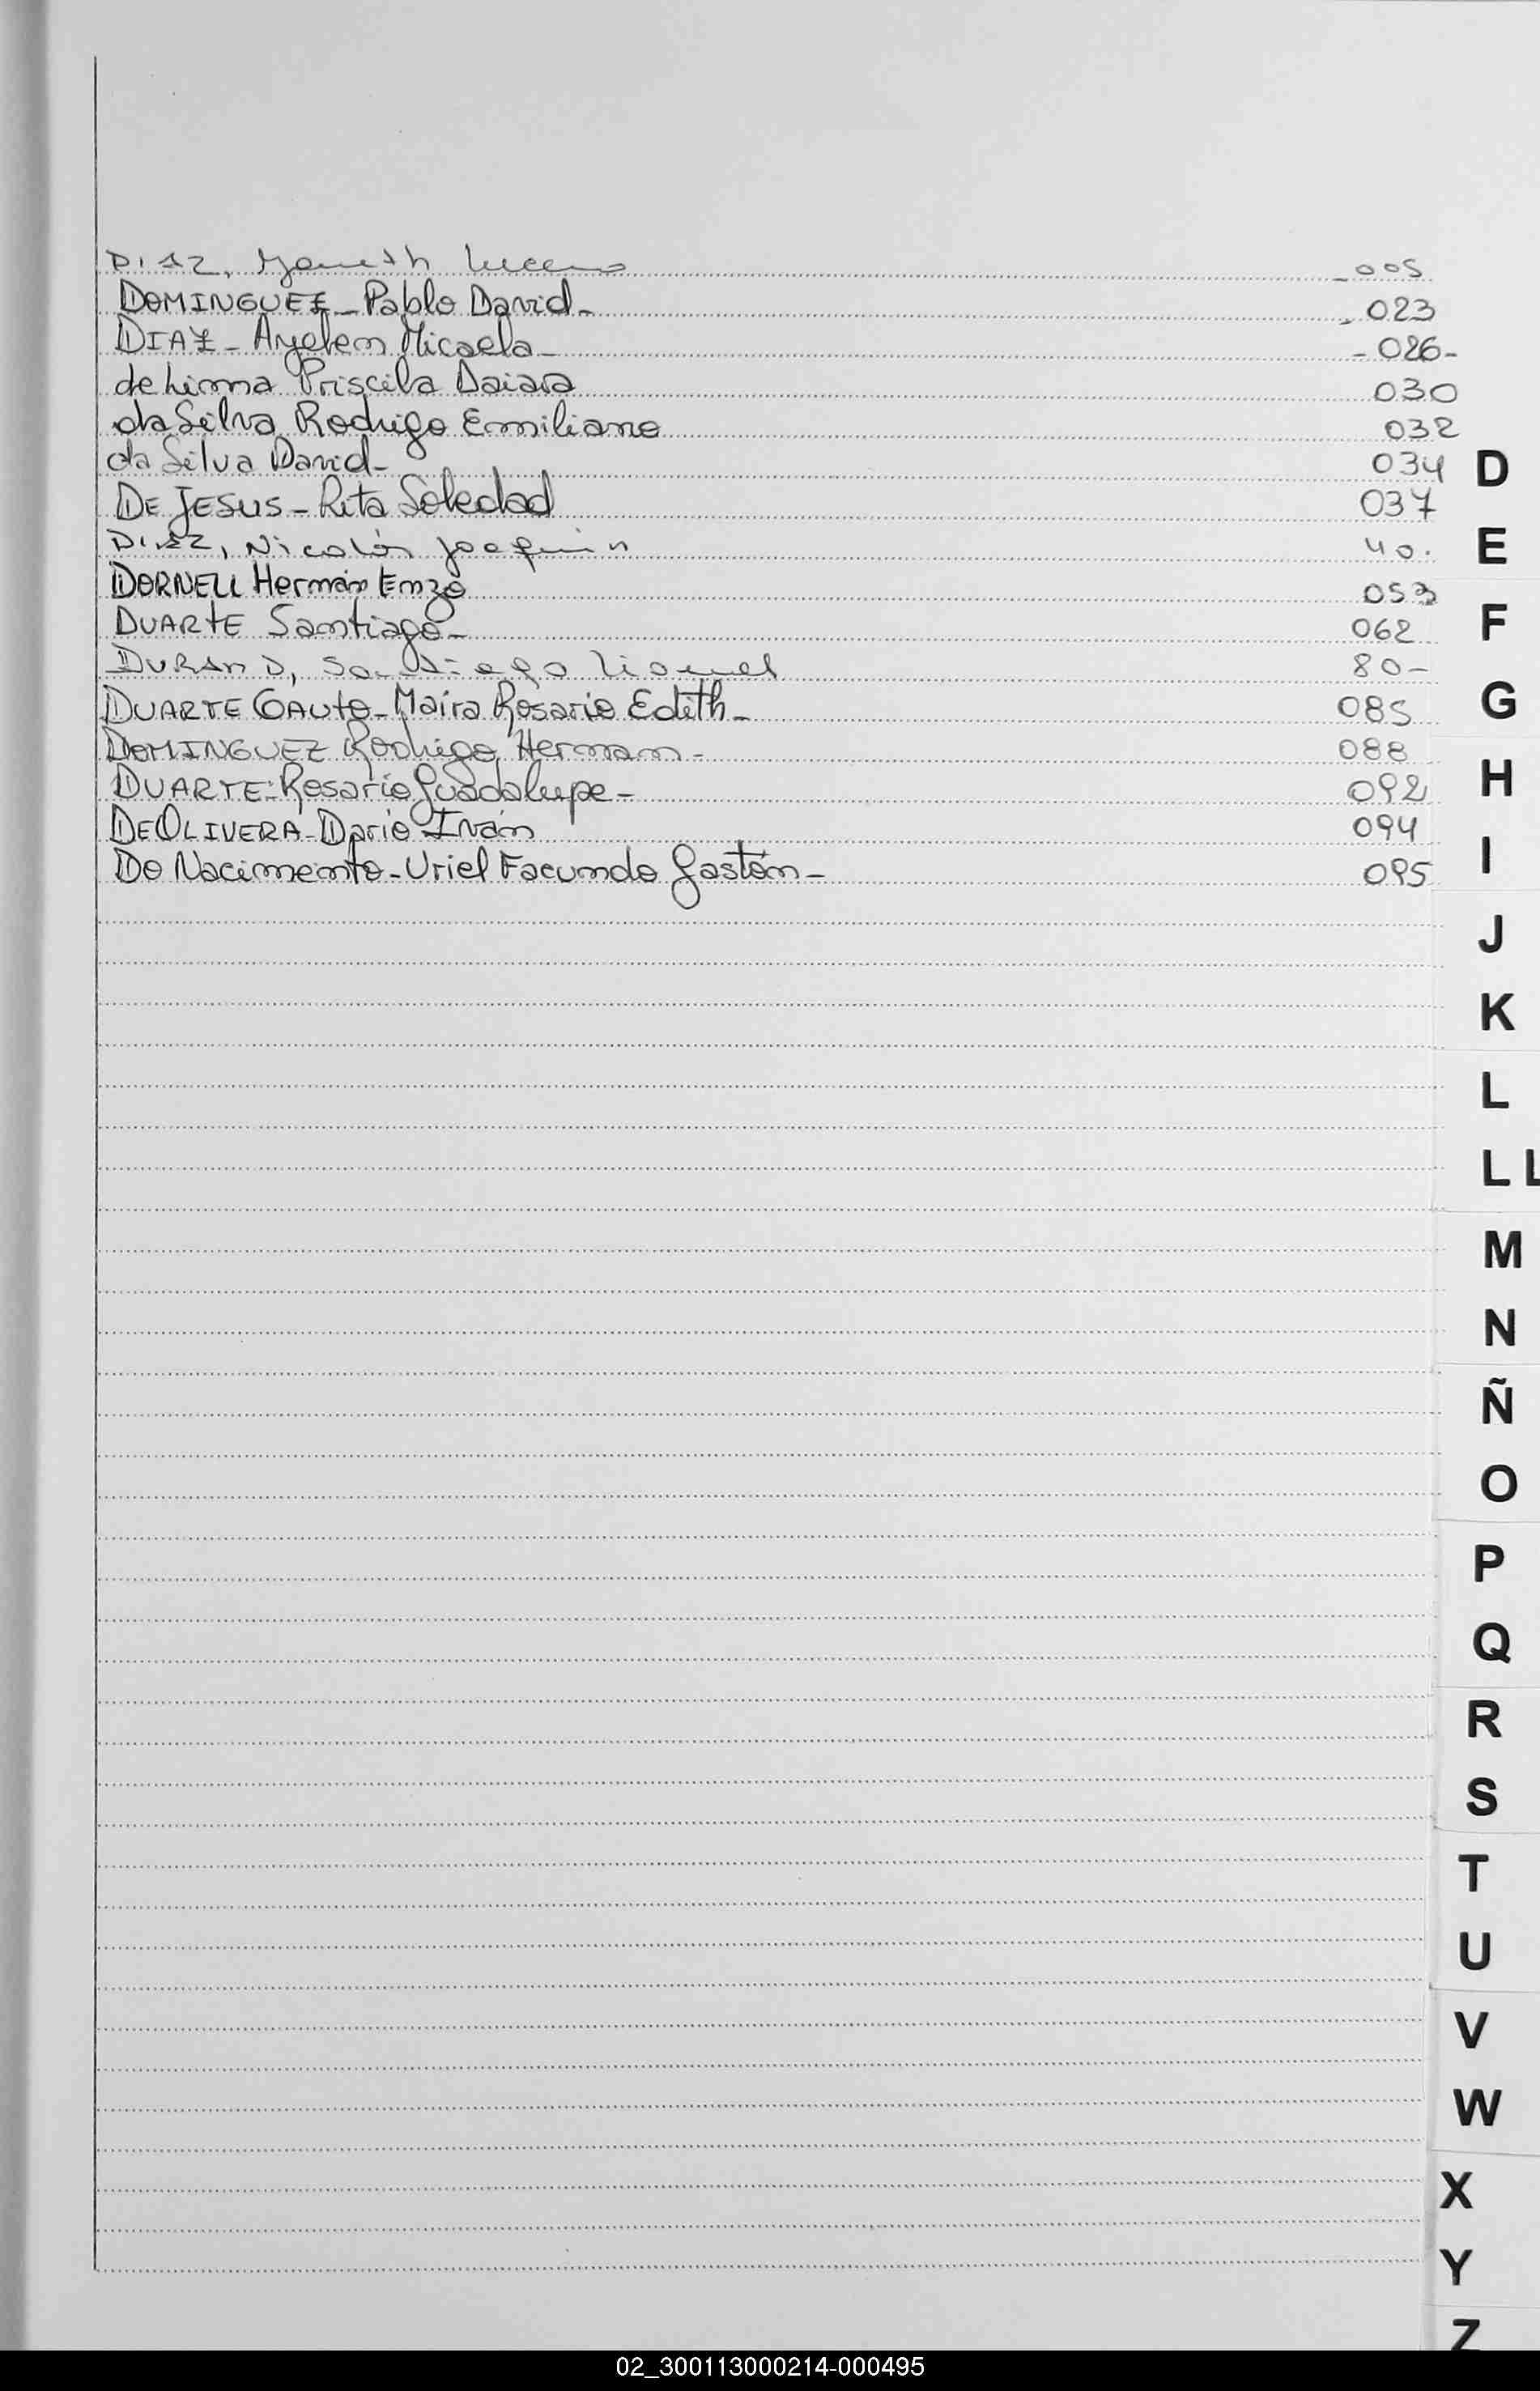 DIAZ, Yaneth Luciano 005
DOMINGUEZ - Pablo David - 023
DIAZ - Ayelem Micaela - 026 -
de Limma Priscila Daiara 030
da Silva Rodrigo Emiliano 032
da Silva David - 034
DE JESUS - Rita Soledad 037
DIAZ, Nicolás Joaquin 40.
DORNELL Hernán Enzo 053
DUARTE Santiago - 062
DURAND, Santiago Lionel 80 -
DUARTE GAUTO - Maira Rosario Edith - 085
DOMINGUEZ Rodrigo Hernan - 088
DUARTE - Rosario Guadalupe - 092
DE OLIVERA - Dario Iván 094
Do Nacimento - Uriel Facundo Gastón - 095
D
E
F
G
H
I
J
K
L
LL
M
N
Ñ
O
P
Q
R
S
T
U
V
W
X
Y
Z
02_300113000214-000495